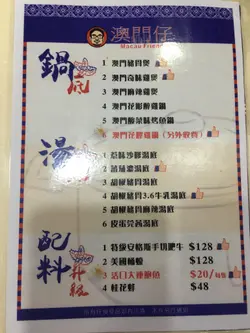 澳門仔
Macau Friend
鍋底
1 澳門豬骨煲
2 澳門奇味雞煲
3 澳門麻辣雞煲
4 澳門花膠醉雞鍋
5 澳門酸菜味㷛魚鍋
澳門花膠雞鍋(另外收費)
湯
1 惹味沙爹湯底
2 清湯
3 胡椒豬骨湯底
4 胡椒豬骨3.6牛乳湯底
5 胡椒豬骨麻辣湯底
6 皮蛋芫茜湯底
配料升級
1 特級安格斯手切肥牛 $128
2 美國桶蠔 $128
3 活口大連鮑魚 $20/
4 桂花蚌 $48